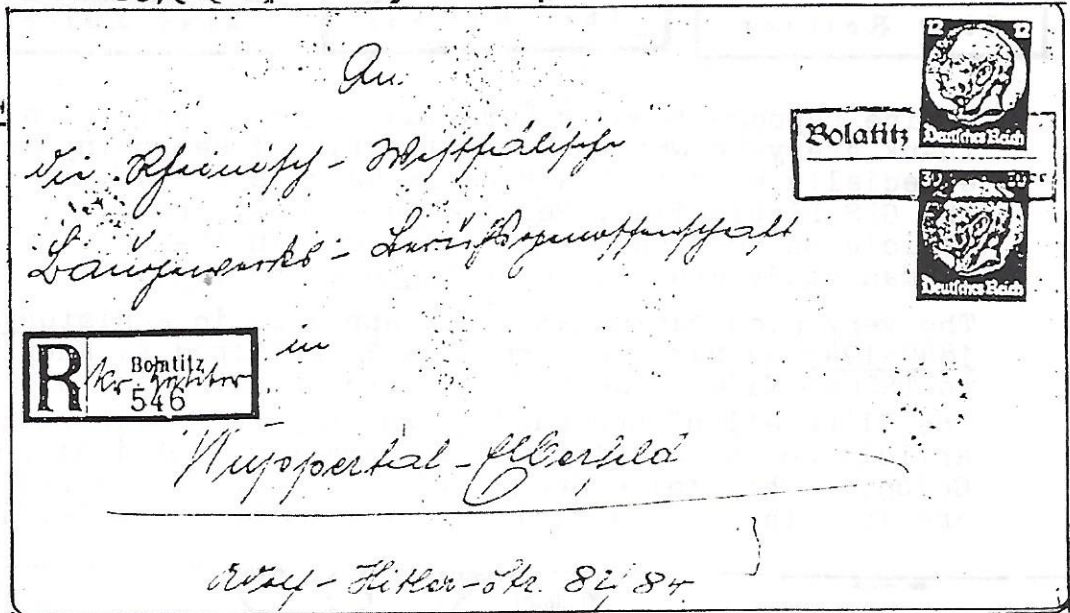 An
die Rheinisch-Westfälische
Baugewerks-Berufsgenossenschaft
in
Wuppertal-Elberfeld
Adolf-Hitler-Str. 82/84
12 12
Deutsches Reich
Bolatitz
30 30
Deutsches Reich
R
Bolatitz
546